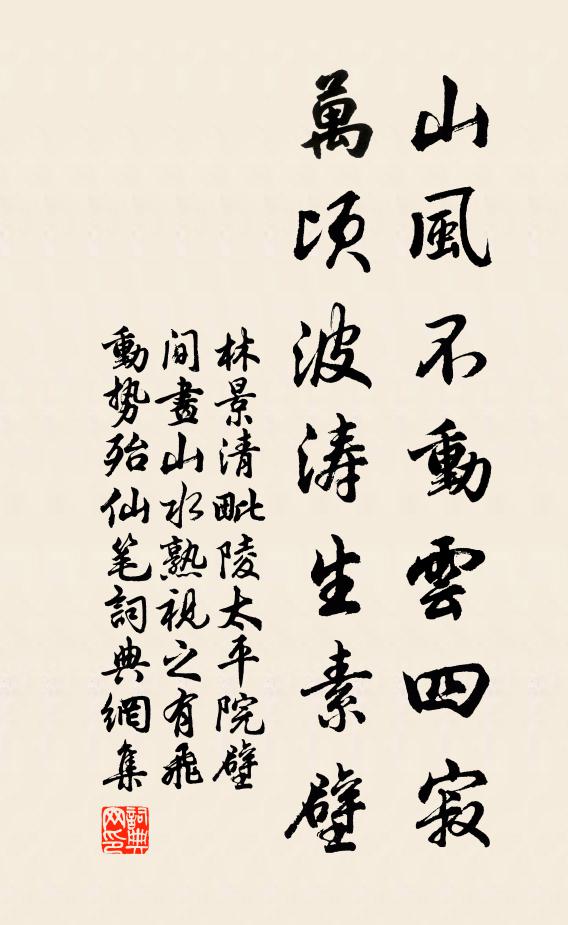 山風不動雲四寂
萬頃波涛生素壁
林景清毗陵太平院壁
间畫山水熟視之有飛
動势殆仙笔詞典網集
詞典网印